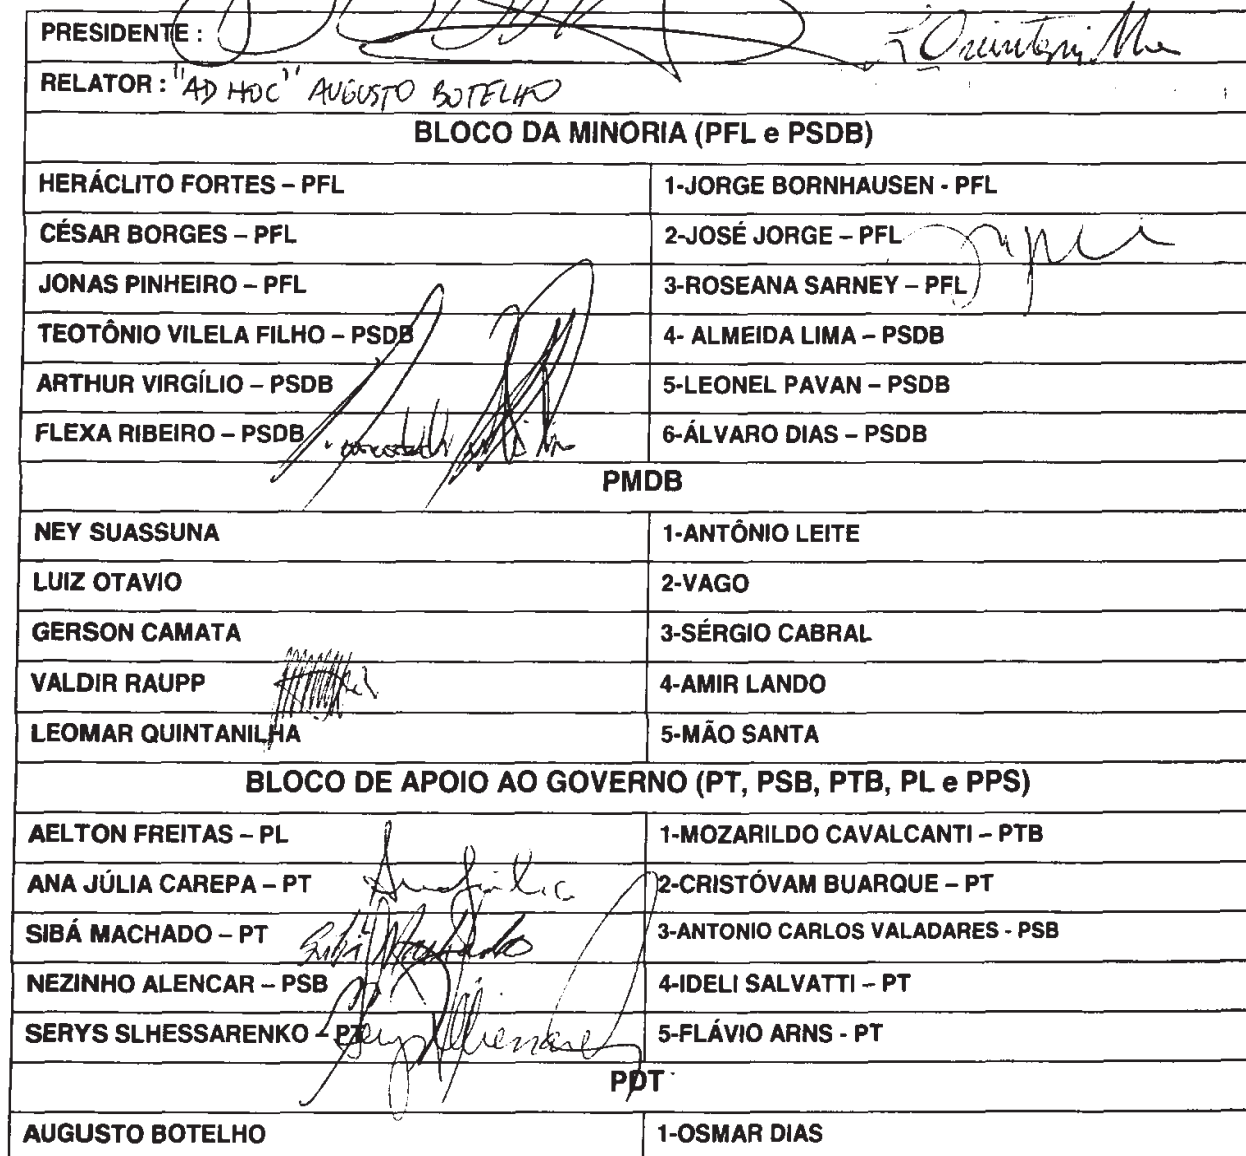 PRESIDENTE :
RELATOR : "AD HOC" AUGUSTO BOTELHO
BLOCO DA MINORIA (PFL e PSDB)
HERÁCLITO FORTES – PFL 1-JORGE BORNHAUSEN - PFL
CÉSAR BORGES – PFL 2-JOSÉ JORGE – PFL
JONAS PINHEIRO – PFL 3-ROSEANA SARNEY – PFL
TEOTÔNIO VILELA FILHO – PSDB 4- ALMEIDA LIMA – PSDB
ARTHUR VIRGÍLIO – PSDB 5-LEONEL PAVAN – PSDB
FLEXA RIBEIRO – PSDB 6-ÁLVARO DIAS – PSDB
PMDB
NEY SUASSUNA 1-ANTÔNIO LEITE
LUIZ OTAVIO 2-VAGO
GERSON CAMATA 3-SÉRGIO CABRAL
VALDIR RAUPP 4-AMIR LANDO
LEOMAR QUINTANILHA 5-MÃO SANTA
BLOCO DE APOIO AO GOVERNO (PT, PSB, PTB, PL e PPS)
AELTON FREITAS – PL 1-MOZARILDO CAVALCANTI – PTB
ANA JÚLIA CAREPA – PT 2-CRISTÓVAM BUARQUE – PT
SIBÁ MACHADO – PT Sibá Machado 3-ANTONIO CARLOS VALADARES - PSB
NEZINHO ALENCAR – PSB 4-IDELI SALVATTI – PT
SERYS SLHESSARENKO – PT 5-FLÁVIO ARNS - PT
PDT
AUGUSTO BOTELHO 1-OSMAR DIAS